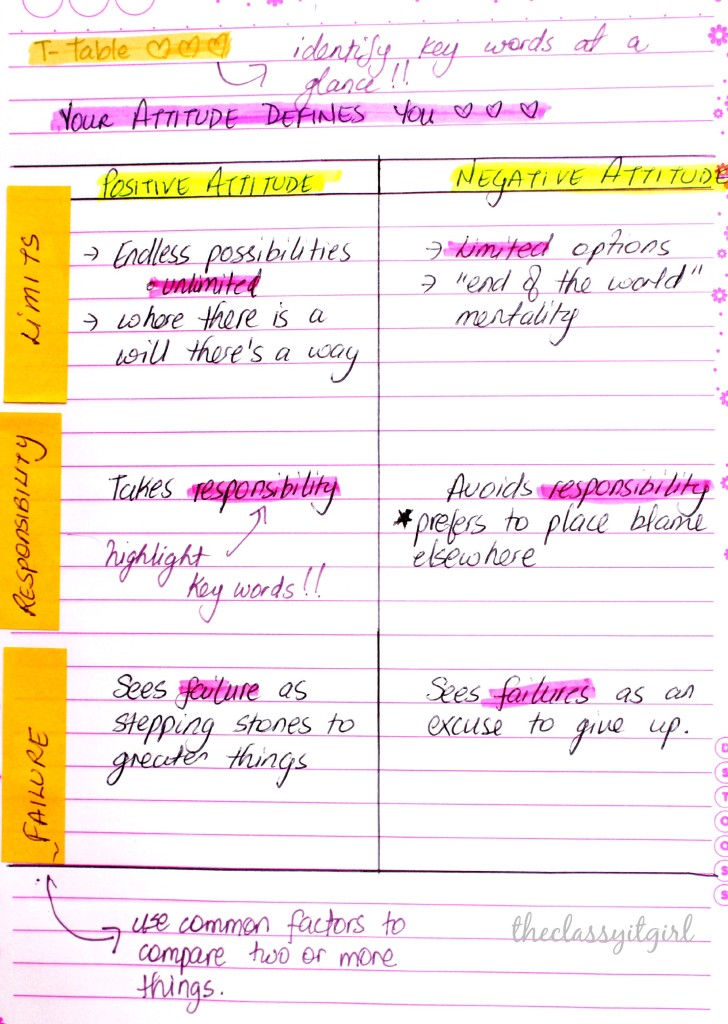 T-table ♡♡♡
identify key words at a
glance!!
YOUR ATTITUDE DEFINES YOU ♡ ♡ ♡
POSITIVE ATTITUDE
NEGATIVE ATTITUDE
LIMITS
→ Endless possibilities
• unlimited
→ where there is a
will there's a way
→ Limited options
→ "end of the world"
mentality
RESPONSIBILITY
Takes responsibility
highlight
key words!!
Avoids responsibility
★ prefers to place blame
elsewhere
FAILURE
Sees failure as
stepping stones to
greater things
Sees failures as an
excuse to give up.
use common factors to
compare two or more
things.
theclassyitgirl